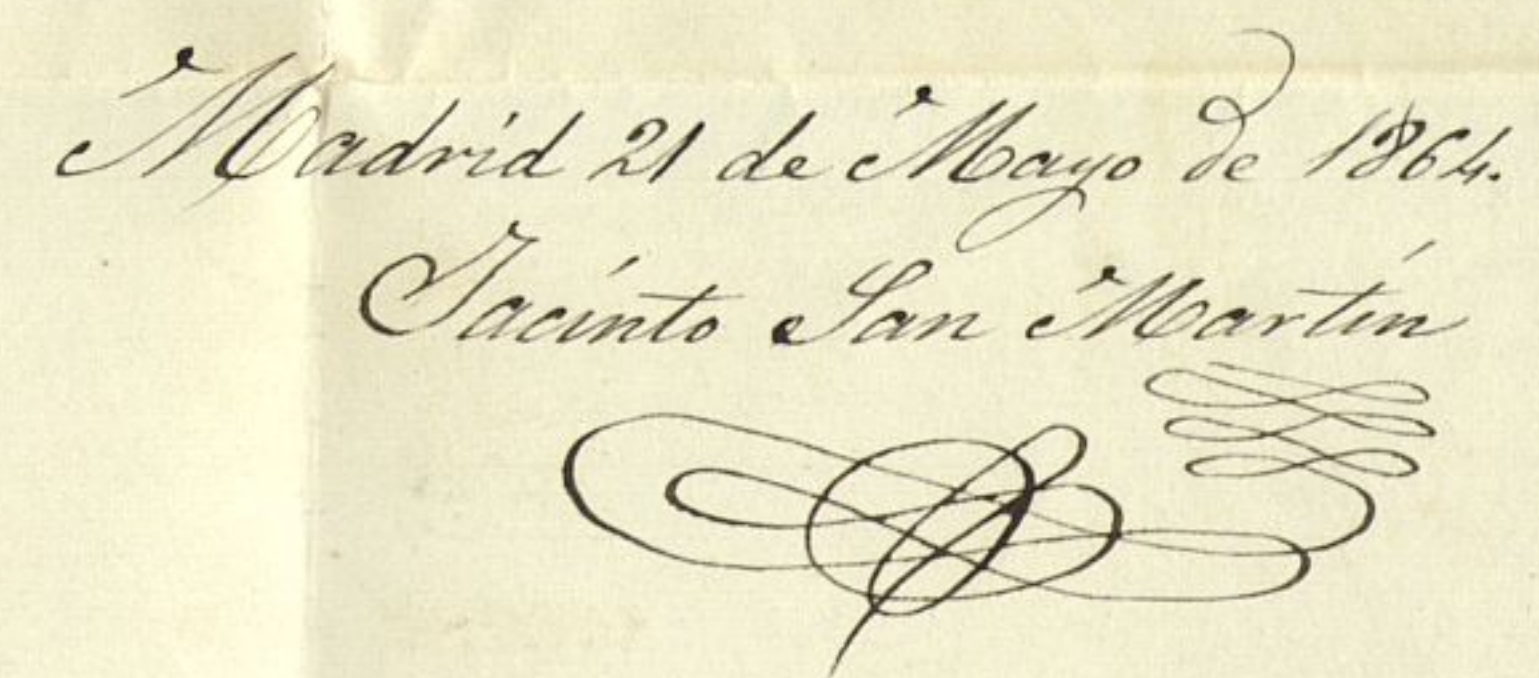 Madrid 21 de Mayo de 1864.
Jacinto San Martín